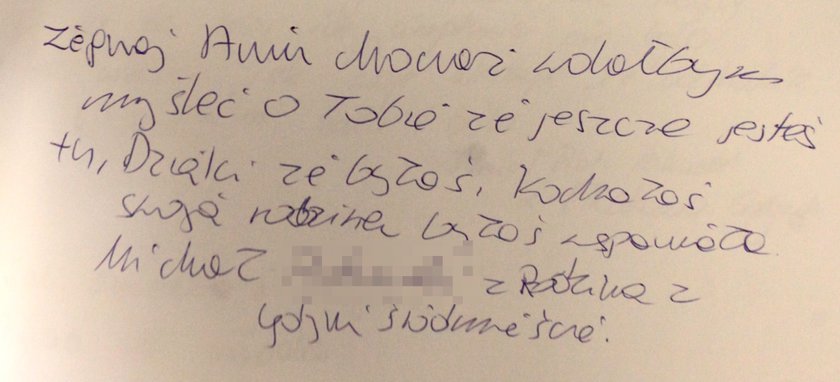 Żegnaj Amir chociaż wolałbym
myśleć o Tobie że jeszcze jesteś
tu, Dzięki że byłeś, Kochałeś
swoją rodzinę byłeś wspaniały
Michał z Rodziną z
Gdyni Śródmieście.